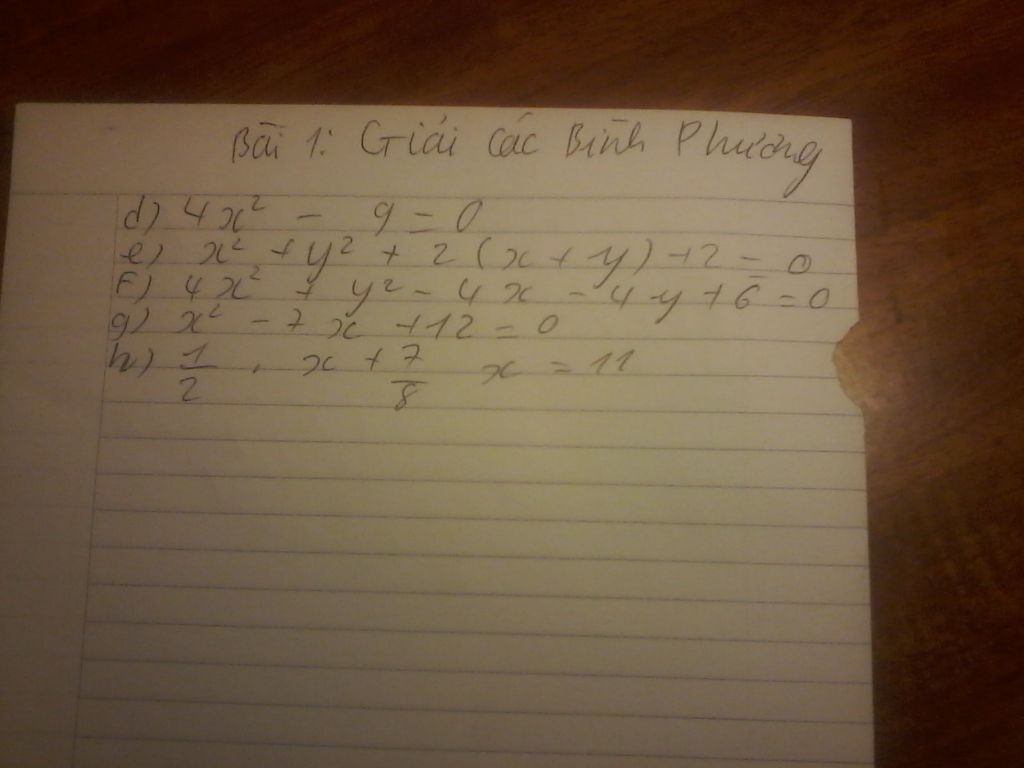 Bài 1: Giải các Bình Phương
d) 4x² - 9 = 0
e) x² + y² + 2 (x + y) + 2 = 0
f) 4x² + y² - 4x - 4y + 6 = 0
g) x² - 7x + 12 = 0
h) 1/2 . x + 7/8 x = 11